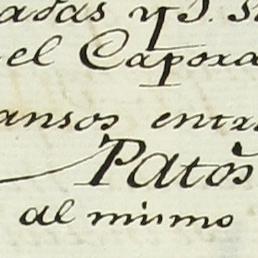 adas y J. Su
el Capora
ansos entr
Patos
al mismo